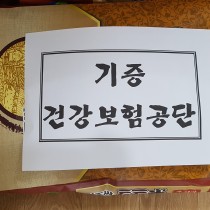 기증
건강보험공단